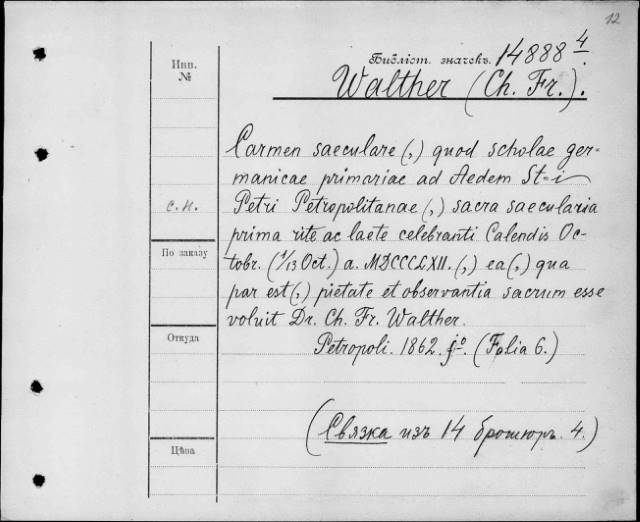 12
Инв.
№
Библіот. значекъ. 14888 4/.
Walther (Ch. Fr.).
Carmen saeculare (,) quod scholae ger-
manicae primariae ad Aedem St=i
с.н. Petri Petropolitanae (,) sacra saecularia
prima rite ac laete celebranti Calendis Oc-
По заказу
tobr. (1/13 Oct.) a. MDCCCLXII. (,) ea (,) qua
par est (,) pietate et observantia sacrum esse
voluit Dr. Ch. Fr. Walther.
Откуда
Petropoli. 1862. fo. (Folia 6.)
(Связка изъ 14 брошюръ. 4.)
Цѣна